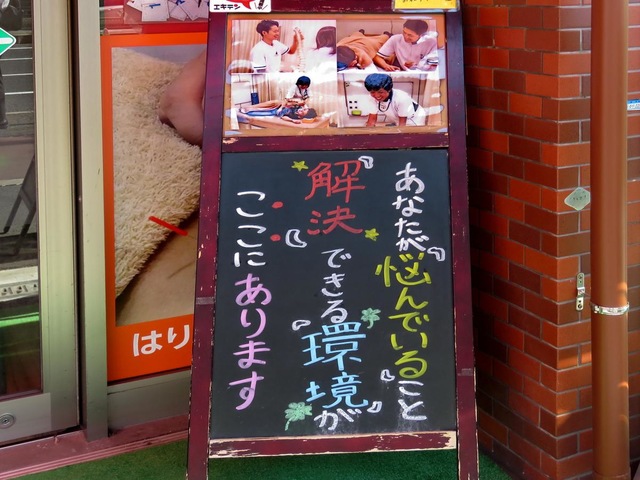 エキテン
あなたが悩んでいること
解決できる環境が
ここにあります
はり